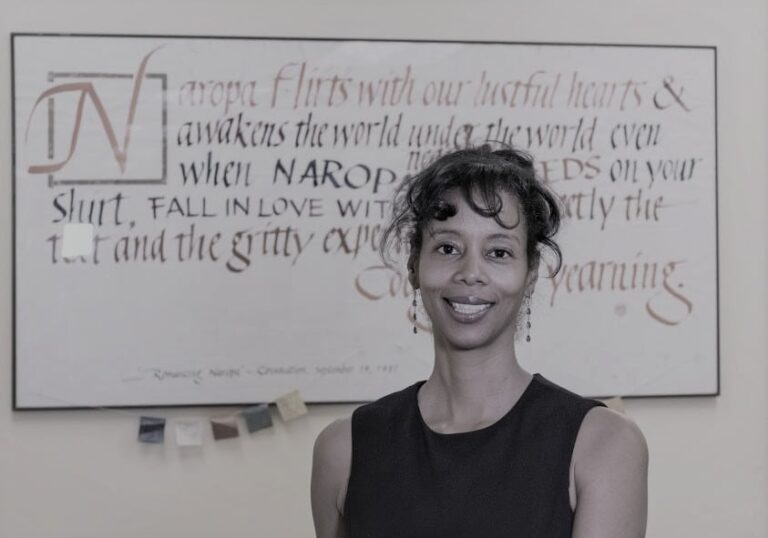 Naropa Flirts with our lustful hearts &
awakens the world under the world even
when NAROPA EDS on your
Shirt, FALL IN LOVE WIT tly the
and the gritty expe
yearning.
"Romancing Naropa" – Convocation, September